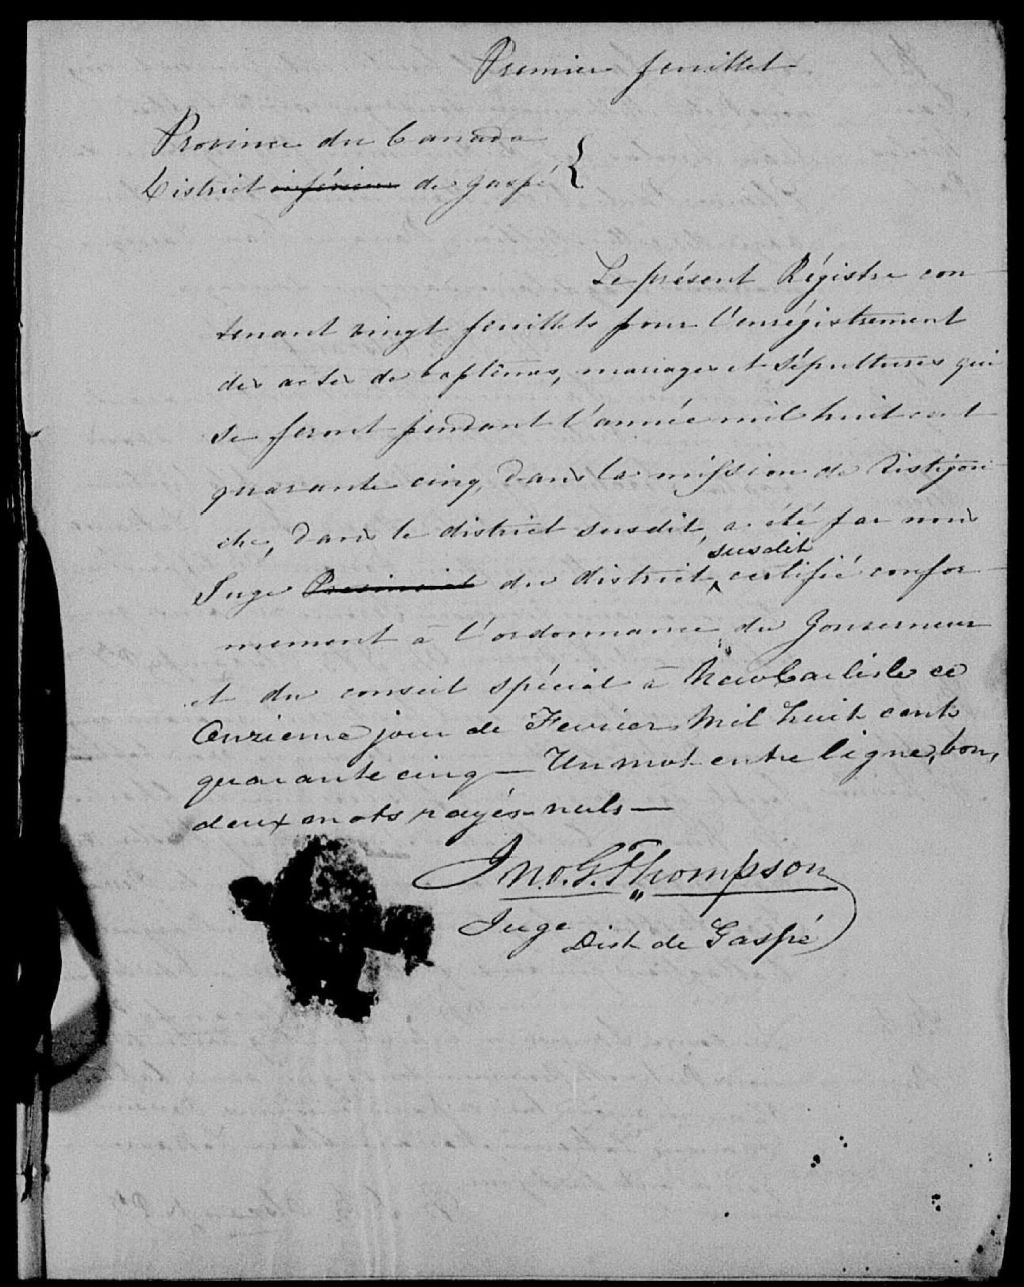 Premier feuillet
Province du Canada
District inférieur de Gaspé
Le présent Régistre con
tenant vingt feuillets pour l'enrégistrement
des actes de baptêmes, mariages et sépultures qui
se feront pendant l'année mil huit cent
quarante cinq, dans la mission de Ristigou
che, dans le district susdit, a été par nous
susdit
Juge Provincial du district, certifié confor
mement à l'ordonnance du Gouverneur
et du conseil spécial à New Carlisle ce
Onzieme jour de Fevrier Mil huit cent
quarante cinq — Un mot entre ligne, bon,
deux mots rayés nuls —
Jno. G. Thompson
Juge
Dist. de Gaspé